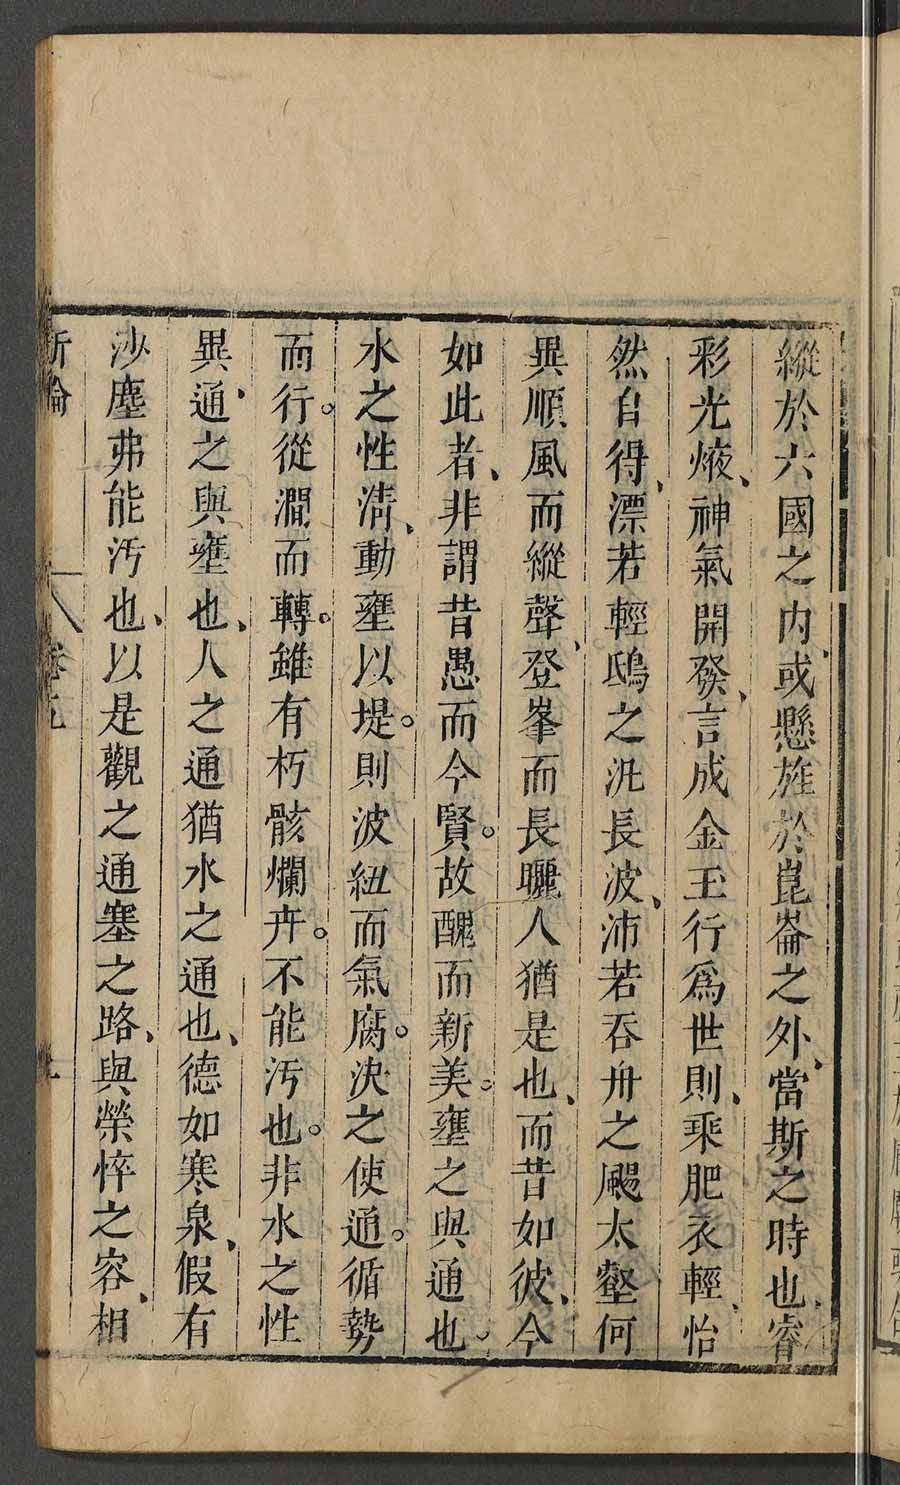 縱於六國之内、或懸旌於崑崙之外、當斯之時也、睿
彩光焲、神氣開發、言成金玉行爲世則、乘肥衣輕、怡
然自得、漂若輕鴟之汎長波、沛若吞舟之颺太壑何
異順風而縱聲、登峯而長㘑人猶是也、而昔如彼、今
如此者、非謂昔愚而今賢。故醜而新美。壅之與通也。
水之性淸、動壅以堤。則波紐而氣腐。決之使通。循勢
而行。從澗而轉。雖有朽骸爛卉。不能汚也。非水之性
異、通之與壅也、人之通猶水之通也、德如寒泉、假有
沙塵弗能汚也、以是觀之通塞之路、與榮悴之容、相
新論
卷九